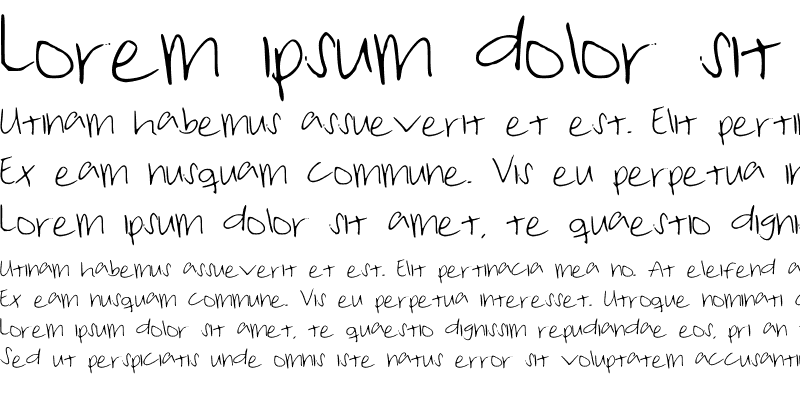 Lorem ipsum dolor sit
Utinam habemus assueverit et est. Elit pertin
Ex eam nusquam commune. Vis eu perpetua in
Lorem ipsum dolor sit amet, te quaestio digni
Utinam habemus assueverit et est. Elit pertinacia mea no. At eleifend a
Ex eam nusquam commune. Vis eu perpetua interesset. Utroque nominati c
Lorem ipsum dolor sit amet, te quaestio dignissim repudiandae eos, pri an
Sed ut perspiciatis unde omnis iste natus error sit voluptatem accusanti